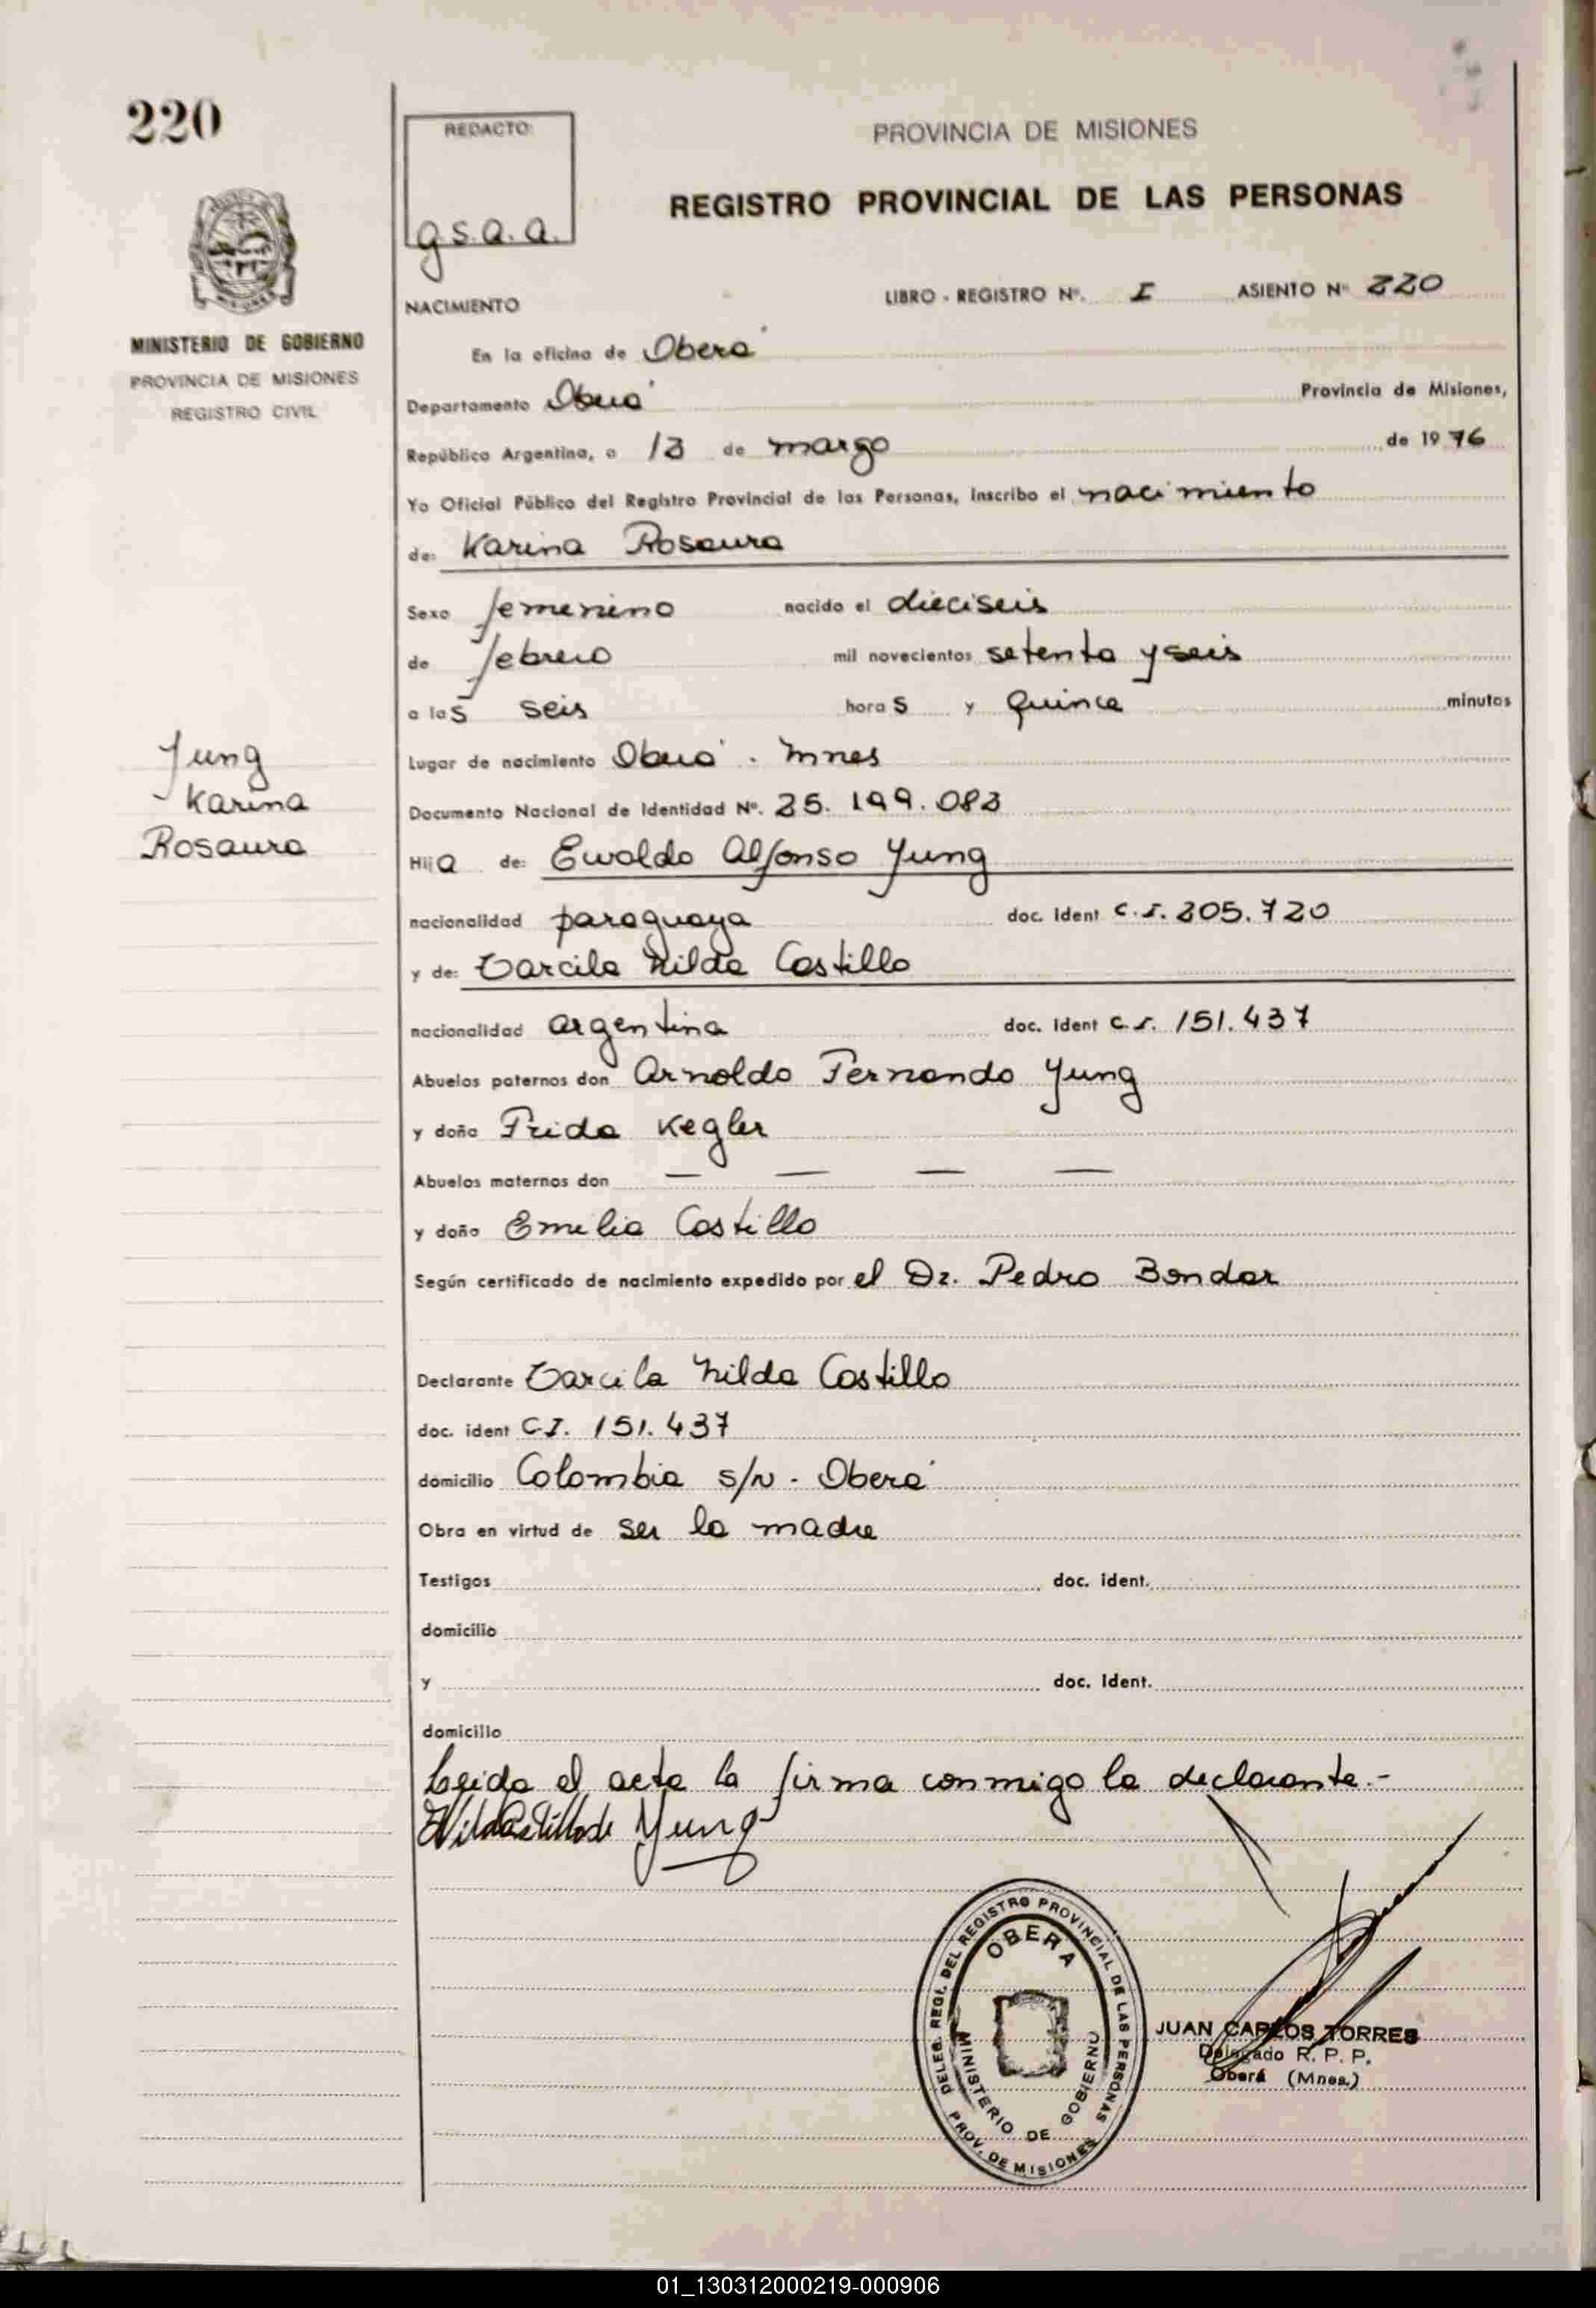 220
REDACTO:
g.s.a.a.
PROVINCIA DE MISIONES
REGISTRO PROVINCIAL DE LAS PERSONAS
MINISTERIO DE GOBIERNO
PROVINCIA DE MISIONES
REGISTRO CIVIL
NACIMIENTO LIBRO - REGISTRO Nº. I ASIENTO Nº 220
En la oficina de Oberá
Departamento Oberá Provincia de Misiones,
República Argentina, a 13 de marzo de 1976
Yo Oficial Público del Registro Provincial de las Personas, inscribo el nacimiento
de: Karina Rosaura
Sexo femenino nacido el dieciseis
de febrero mil novecientos setenta y seis
a las seis horas y quince minutos
Lugar de nacimiento Oberá - Mnes
Documento Nacional de Identidad Nº. 25.199.083
Yung
Karina
Rosaura
Hija de: Ewaldo Alfonso Yung
nacionalidad paraguaya doc. ident C.I. 205.720
y de: Tarcila Nilda Castillo
nacionalidad argentina doc. ident C.I. 151.437
Abuelos paternos don Arnoldo Fernando Yung
y doña Frida Kegler
Abuelos maternos don — — — —
y doña Emilia Castillo
Según certificado de nacimiento expedido por el Dr. Pedro Bondar
Declarante Tarcila Nilda Castillo
doc. ident C.I. 151.437
domicilio Colombia s/n - Oberá
Obra en virtud de ser la madre
Testigos doc. ident.
domicilio
y doc. ident.
domicilio
Leida el acta la firma conmigo la declarante.-
Nilda Castillo de Yung
DELEG. REGI. DEL REGISTRO PROVINCIAL DE LAS PERSONAS
OBERA
MINISTERIO DE GOBIERNO
PROV. DE MISIONES
JUAN CARLOS TORRES
Delegado R. P. P.
Oberá (Mnes.)
01_130312000219-000906